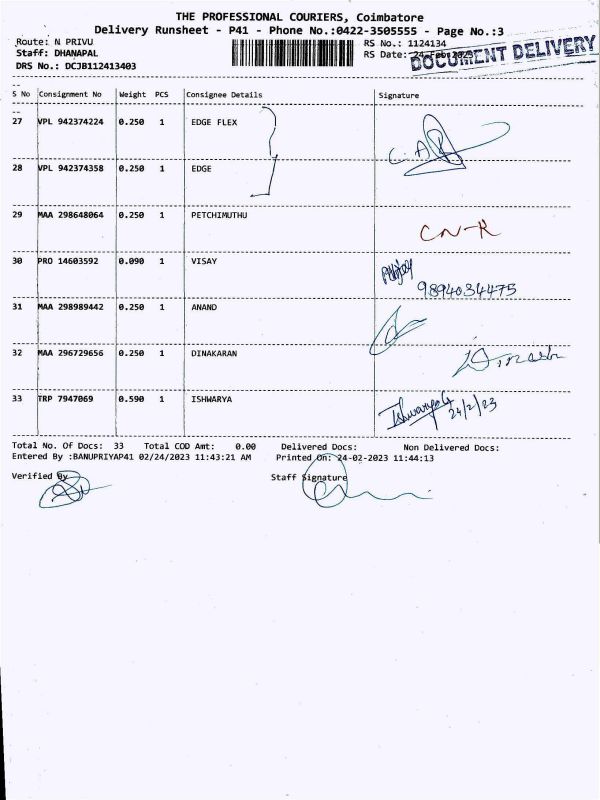 THE PROFESSIONAL COURIERS, Coimbatore
Delivery Runsheet - P41 - Phone No.:0422-3505555 - Page No.:3
Route: N PRIVU
RS No.: 1124134
Staff: DHANAPAL
RS Date: 24-Feb-2023
DOCUMENT DELIVERY
DRS No.: DCJB112413403
S No Consignment No Weight PCS Consignee Details Signature
27 VPL 942374224 0.250 1 EDGE FLEX
28 VPL 942374358 0.250 1 EDGE
29 MAA 298648064 0.250 1 PETCHIMUTHU
CN-R
30 PRO 14603592 0.090 1 VISAY
9894034475
31 MAA 298989442 0.250 1 ANAND
32 MAA 296729656 0.250 1 DINAKARAN
33 TRP 7947069 0.590 1 ISHWARYA
24/2/23
Total No. Of Docs: 33 Total COD Amt: 0.00 Delivered Docs: Non Delivered Docs:
Entered By :BANUPRIYAP41 02/24/2023 11:43:21 AM Printed On: 24-02-2023 11:44:13
Verified By
Staff Signature